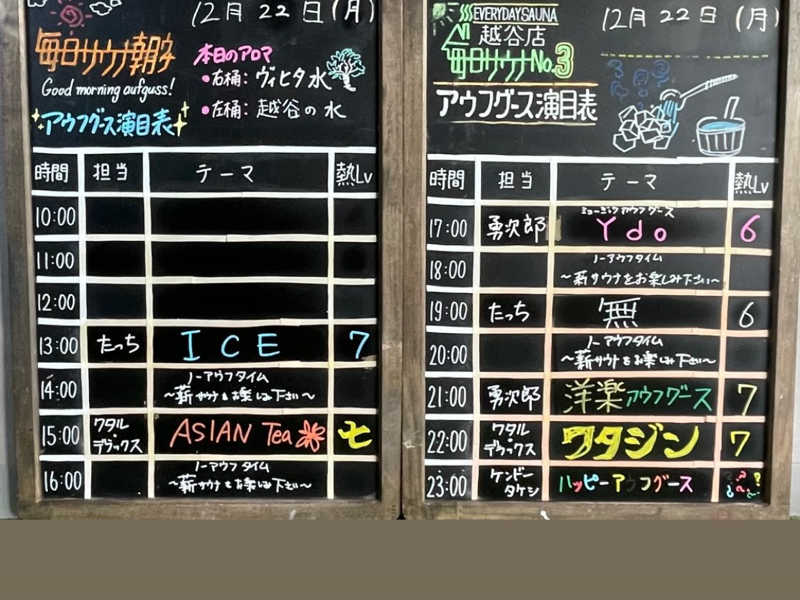 12月22日(月)
毎日サウナ朝
Good morning aufguss!
アウフグース演目表
本日のアロマ
•右桶：ヴィヒタ水
•左桶：越谷の水
時間 担当 テーマ 熱Lv
10:00
11:00
12:00
13:00 たっち ICE 7
14:00 ノーアウフタイム
〜薪サウナをお楽しみ下さい〜
15:00 ワタル・デラックス ASIAN Tea 七
16:00 ノーアウフタイム
〜薪サウナをお楽しみ下さい〜
EVERYDAY SAUNA
越谷店
毎日サウナNo.3
アウフグース演目表
12月22日(月)
時間 担当 テーマ 熱Lv
ミュージックアウフグース
17:00 勇次郎 Ydo 6
18:00 ノーアウフタイム
〜薪サウナをお楽しみ下さい〜
19:00 たっち 無 6
20:00 ノーアウフタイム
〜薪サウナをお楽しみ下さい〜
21:00 勇次郎 洋楽アウフグース 7
22:00 ワタル・デラックス ワタジン 7
23:00 ケンドータケシ ハッピーアウフグース ???